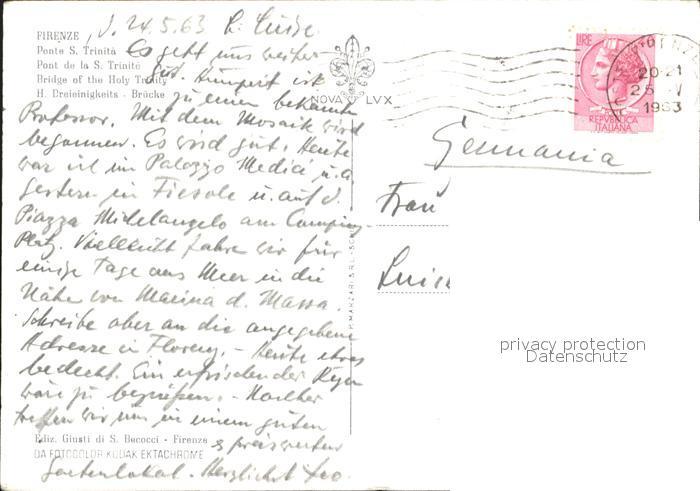 FIRENZE, d. 24.5.63 L. Luise
Ponte S. Trinità Es geht uns weiter
Pont de la S. Trinité gut.
Bridge of the Holy Trinity
H. Dreieinigkeits - Brücke zu einem
Professor. Mit dem Mosaik wird
begonnen. Es wird gut. Heute
war ich im Palazzo Medici u. a.
gestern in Fiesole u. auf d.
Piazza Michelangelo am Camping-
Platz. Vielleicht fahre wir für
einige Tage ans Meer in die
Nähe von Marina d. Massa.
Schreibe aber an die angegebene
Adresse in Florenz. - Heute etwas
bedeckt. Ein erfrischender Regen
wäre zu begrüßen. - Nachher
treffen wir uns in einem guten
Ediz. Giusti di S. Becocci - Firenze & preiswerten
DA FOTOCOLOR KODAK EKTACHROME
Gartenlokal. Herzlichst Leo.
NOVA LVX
LIRE
REPVBBLICA
ITALIANA
20-21
25 V
1963
Germania
Frau
Luis
privacy protection
Datenschutz